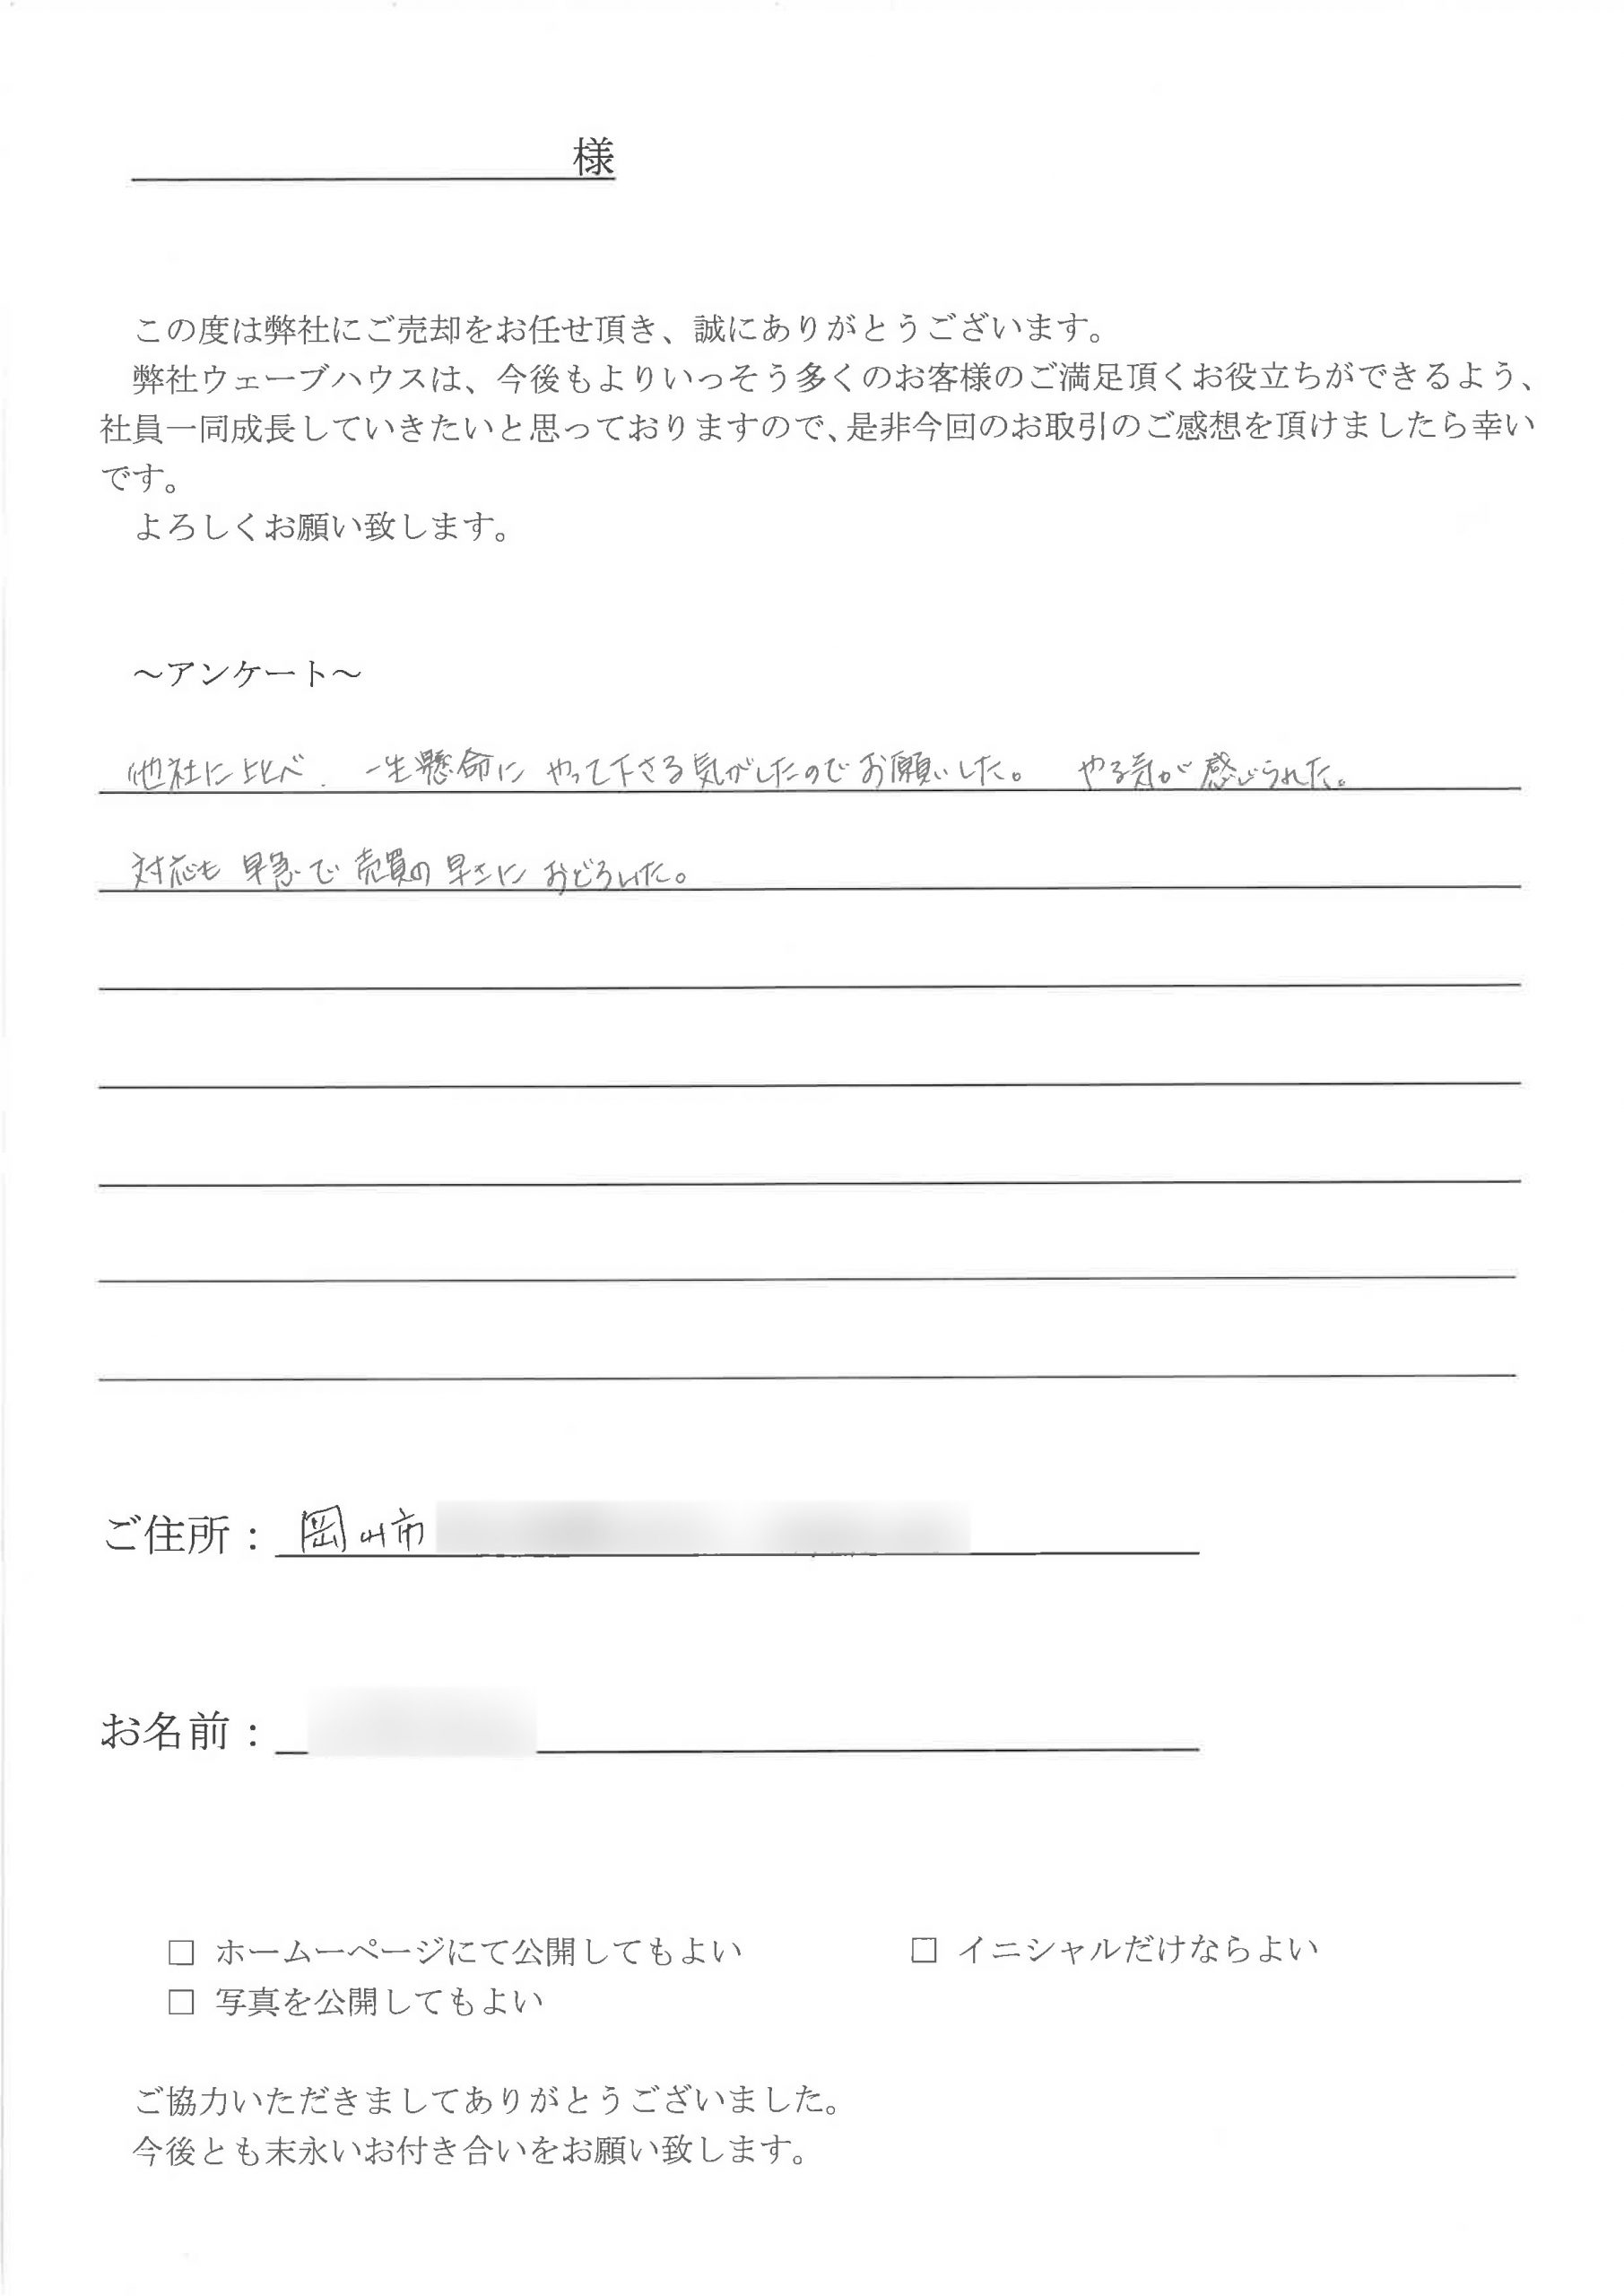 様
この度は弊社にご売却をお任せ頂き、誠にありがとうございます。
弊社ウェーブハウスは、今後もよりいっそう多くのお客様のご満足頂くお役立ちができるよう、
社員一同成長していきたいと思っておりますので、是非今回のお取引のご感想を頂けましたら幸い
です。
よろしくお願い致します。
～アンケート～
他社に比べ、一生懸命に やって下さる気がしたのでお願いした。 やる気が感じられた。
対応も 早急で 売買の 早さに おどろいた。
ご住所： 岡山市
お名前：
□ ホームーページにて公開してもよい □ イニシャルだけならよい
□ 写真を公開してもよい
ご協力いただきましてありがとうございました。
今後とも末永いお付き合いをお願い致します。